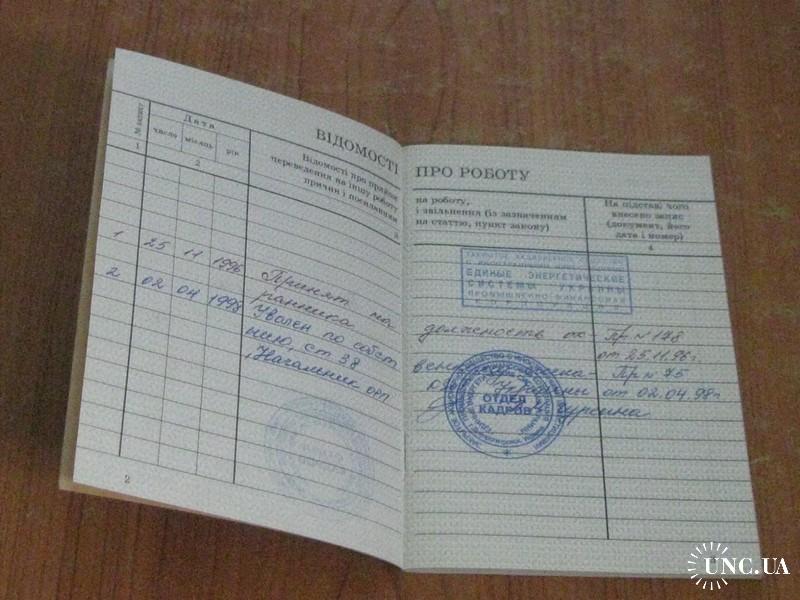 ВІДОМОСТІ ПРО РОБОТУ
№ запису
Дата
число місяць рік
Відомості про прийом на роботу,
переведення на іншу роботу і звільнення (із зазначенням
причин і посиланням на статтю, пункт закону)
На підставі чого
внесено запис
(документ, його
дата і номер)
1 2 3 4
ЕДИНЫЕ ЭНЕРГЕТИЧЕСКИЕ
СИСТЕМЫ УКРАИНЫ
ПРОМЫШЛЕННО-ФИНАНСОВАЯ
КОРПОРАЦИЯ
1 25 11 1996 Принят на должность ох- Пр. № 178
ранника. от 25.11.96г.
2 02 04 1998 Уволен по собст венному Пр № 75
нию, ст. 38 Украины от 02.04.98г.
Начальник отд
ОТДЕЛ
КАДРОВ
2
UNC.UA